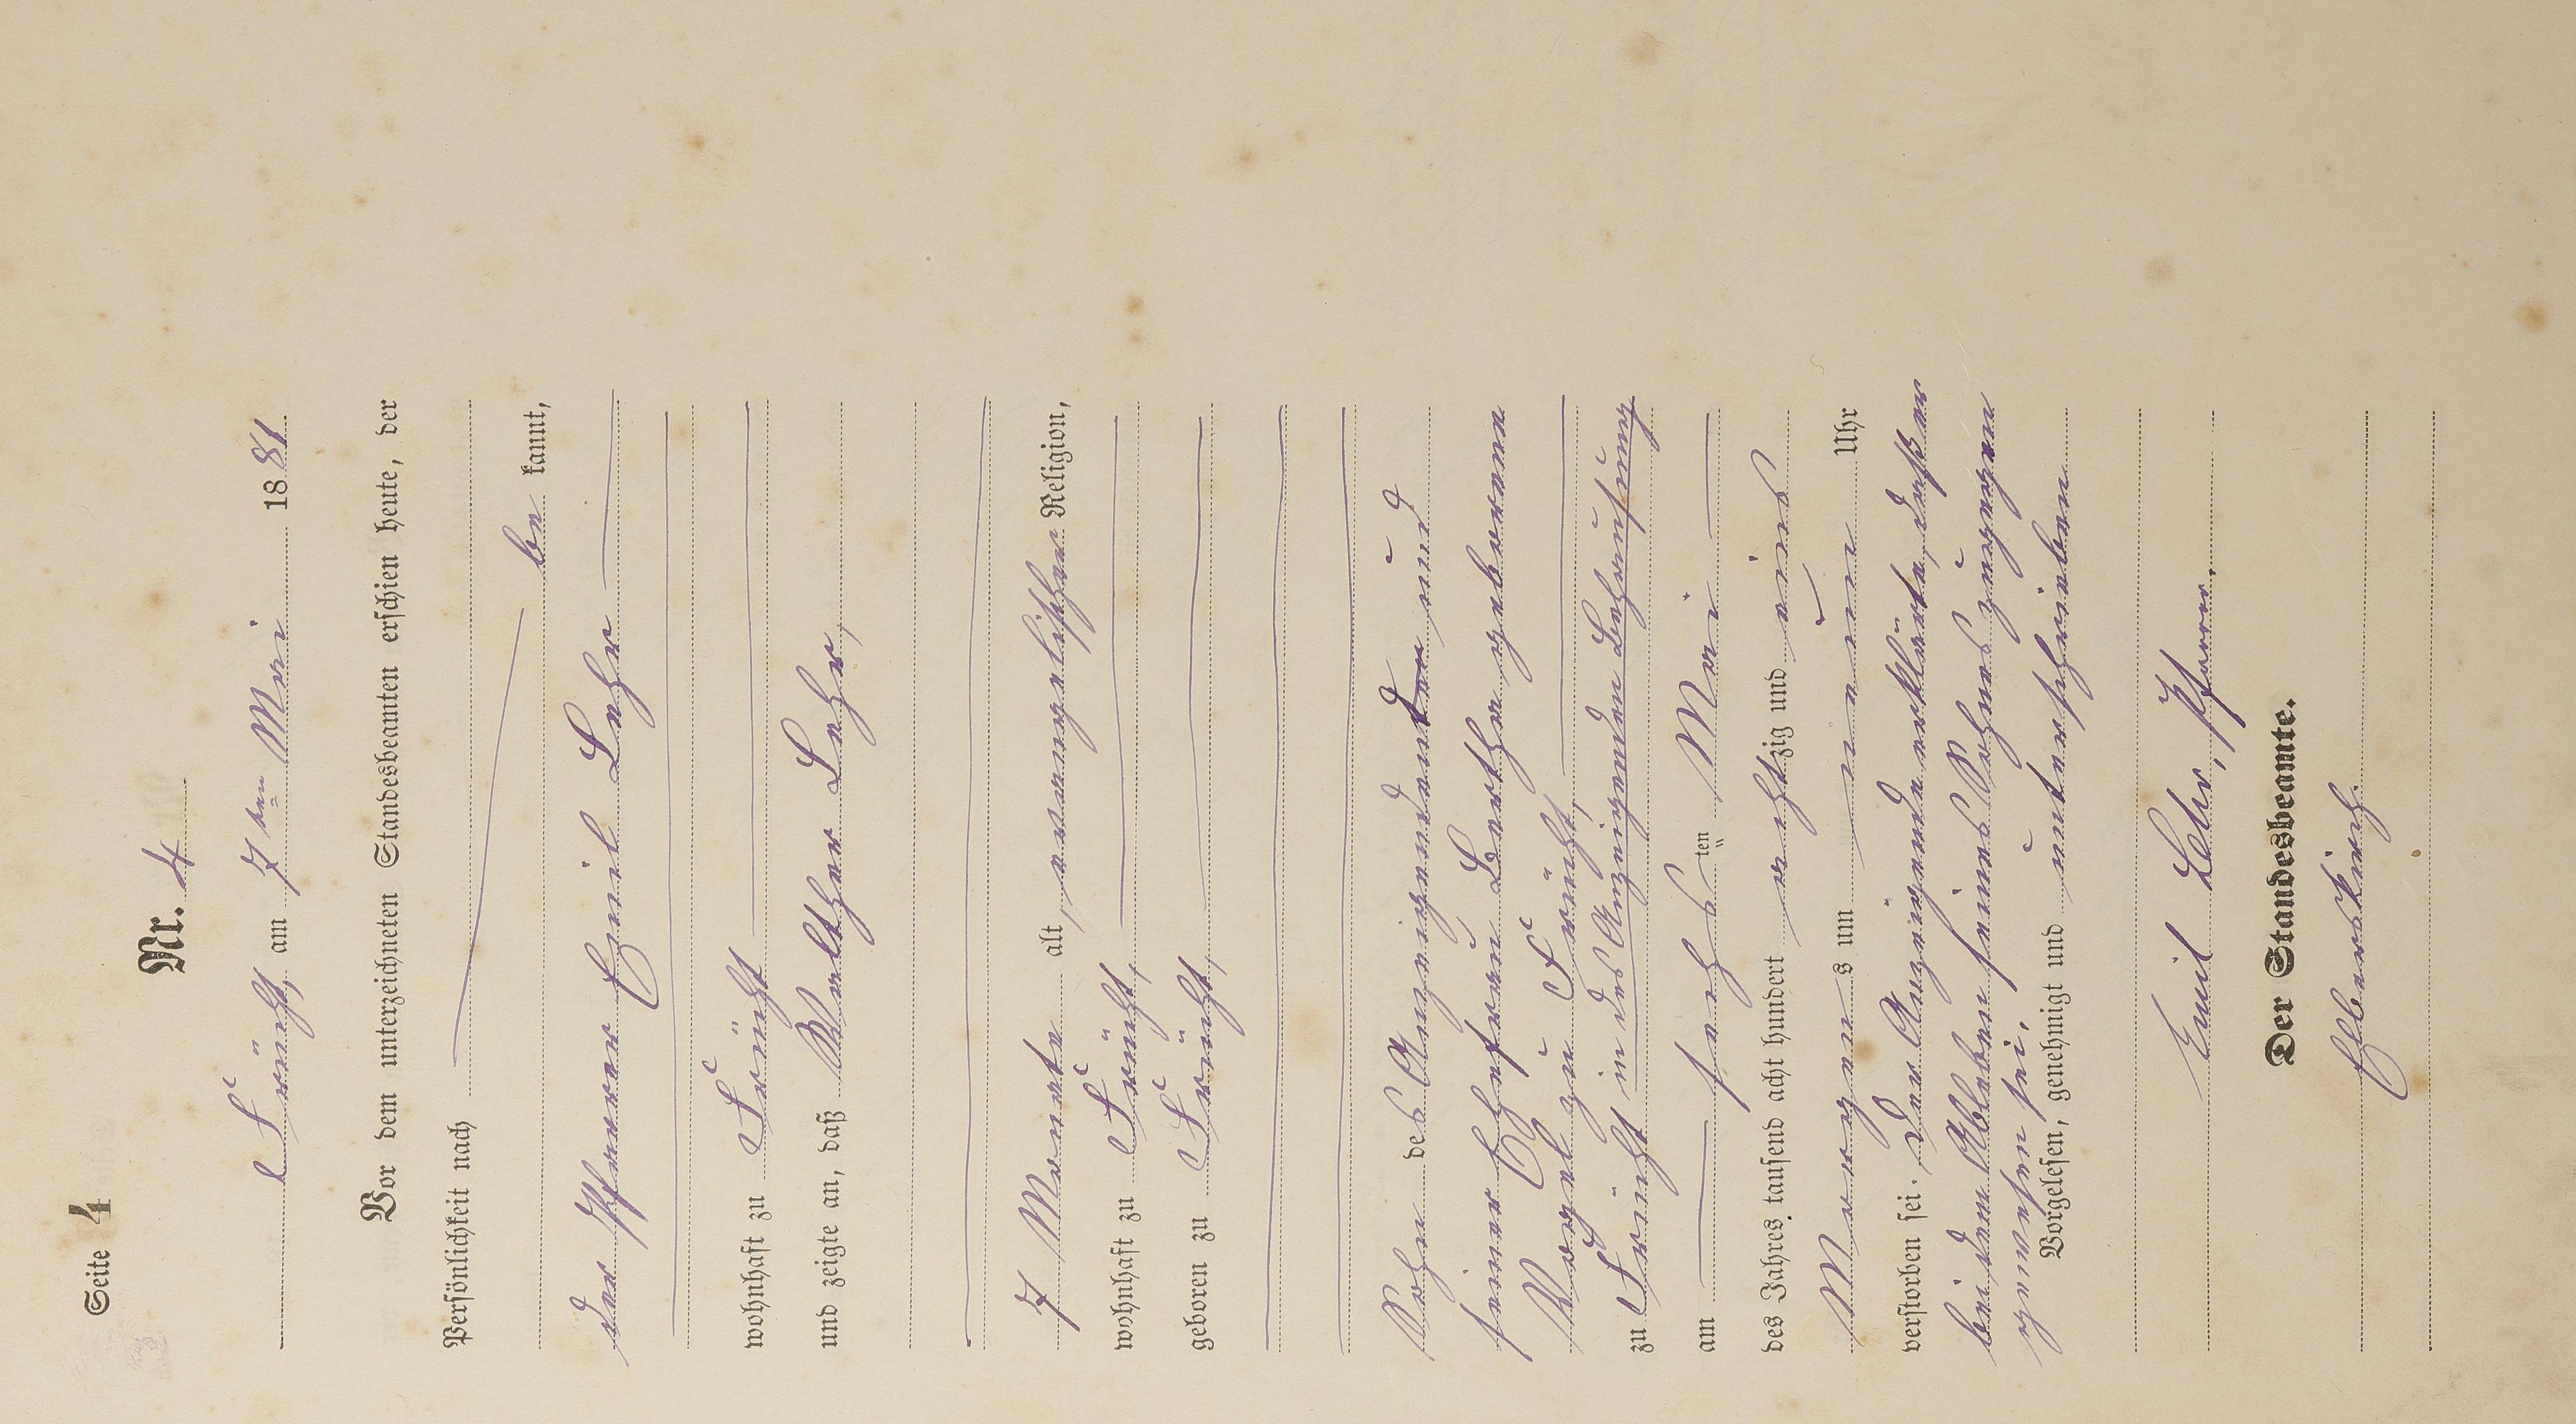 Seite 4
Nr. 4
Frücht, am 7ten Mai 1881
Vor dem unterzeichneten Standesbeamten erschien heute, der
Persönlichkeit nach
be kannt,
der Pfarrer Emil Lehr
wohnhaft zu Frücht
und zeigte an, daß Walther Lehr,
7 Monate alt, evangelischer Religion,
wohnhaft zu Frücht,
geboren zu Frücht,
Sohn des Anzeigenden und
seiner Ehefrau Bertha geborene
Vogel zu Frücht,
zu Frücht in des Anzeigenden Behausung
am sechs ten Mai
des Jahres tausend acht hundert achtzig und eins
Morgens um neun Uhr
verstorben sei. Der Anzeigende erklärte, daß er
bei dem Ableben seines Sohnes zugegen
gewesen sei.
Vorgelesen, genehmigt und unterschrieben
Emil Lehr, Pfarrer.
Der Standesbeamte.